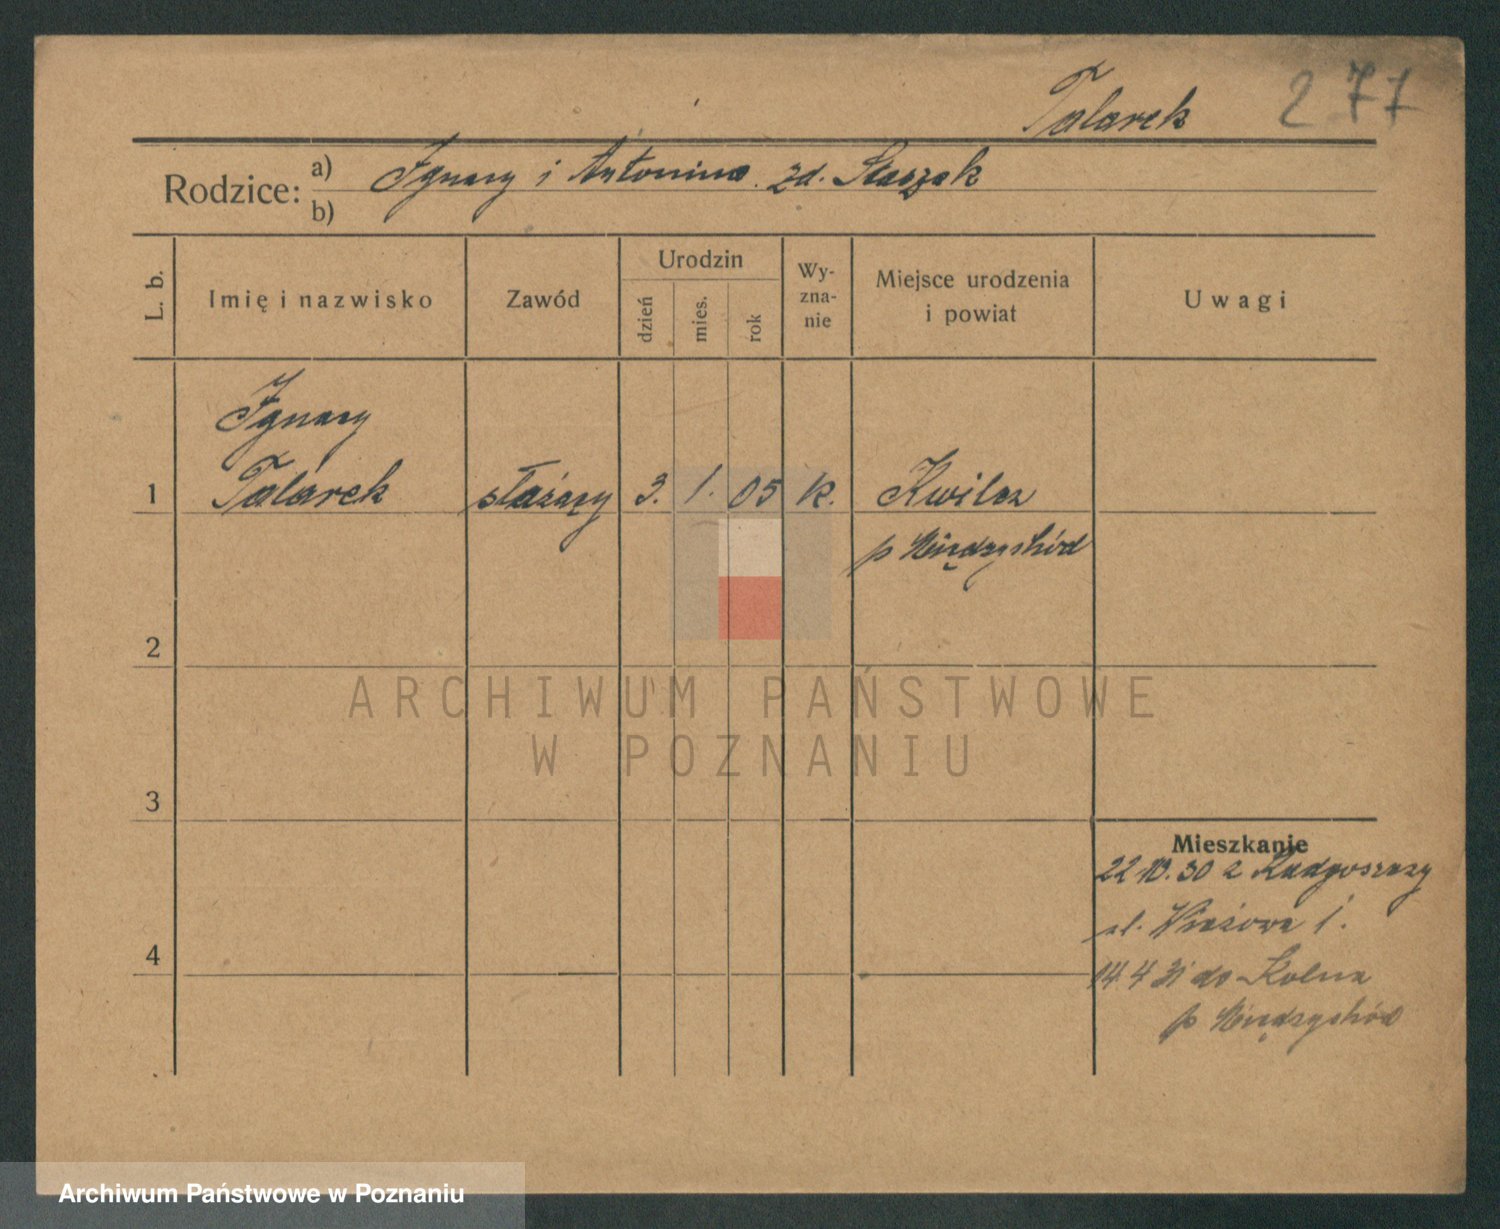 Talarek 277
Rodzice: a) Ignacy i Antonina zd. Staszak
b)
L. b. Imię i nazwisko Zawód Urodzin dzień mies. rok Wy-zna-nie Miejsce urodzenia i powiat Uwagi
Ignacy
1 Talarek służący 3. 1. 05 k. Kwilcz
p Międzychód
2
ARCHIWUM PAŃSTWOWE
W POZNANIU
3
Mieszkanie
22 10. 30 z Radgoszczy
ul. 1.
4
14. 4 31 do Kolna
p Międzychód
Archiwum Państwowe w Poznaniu